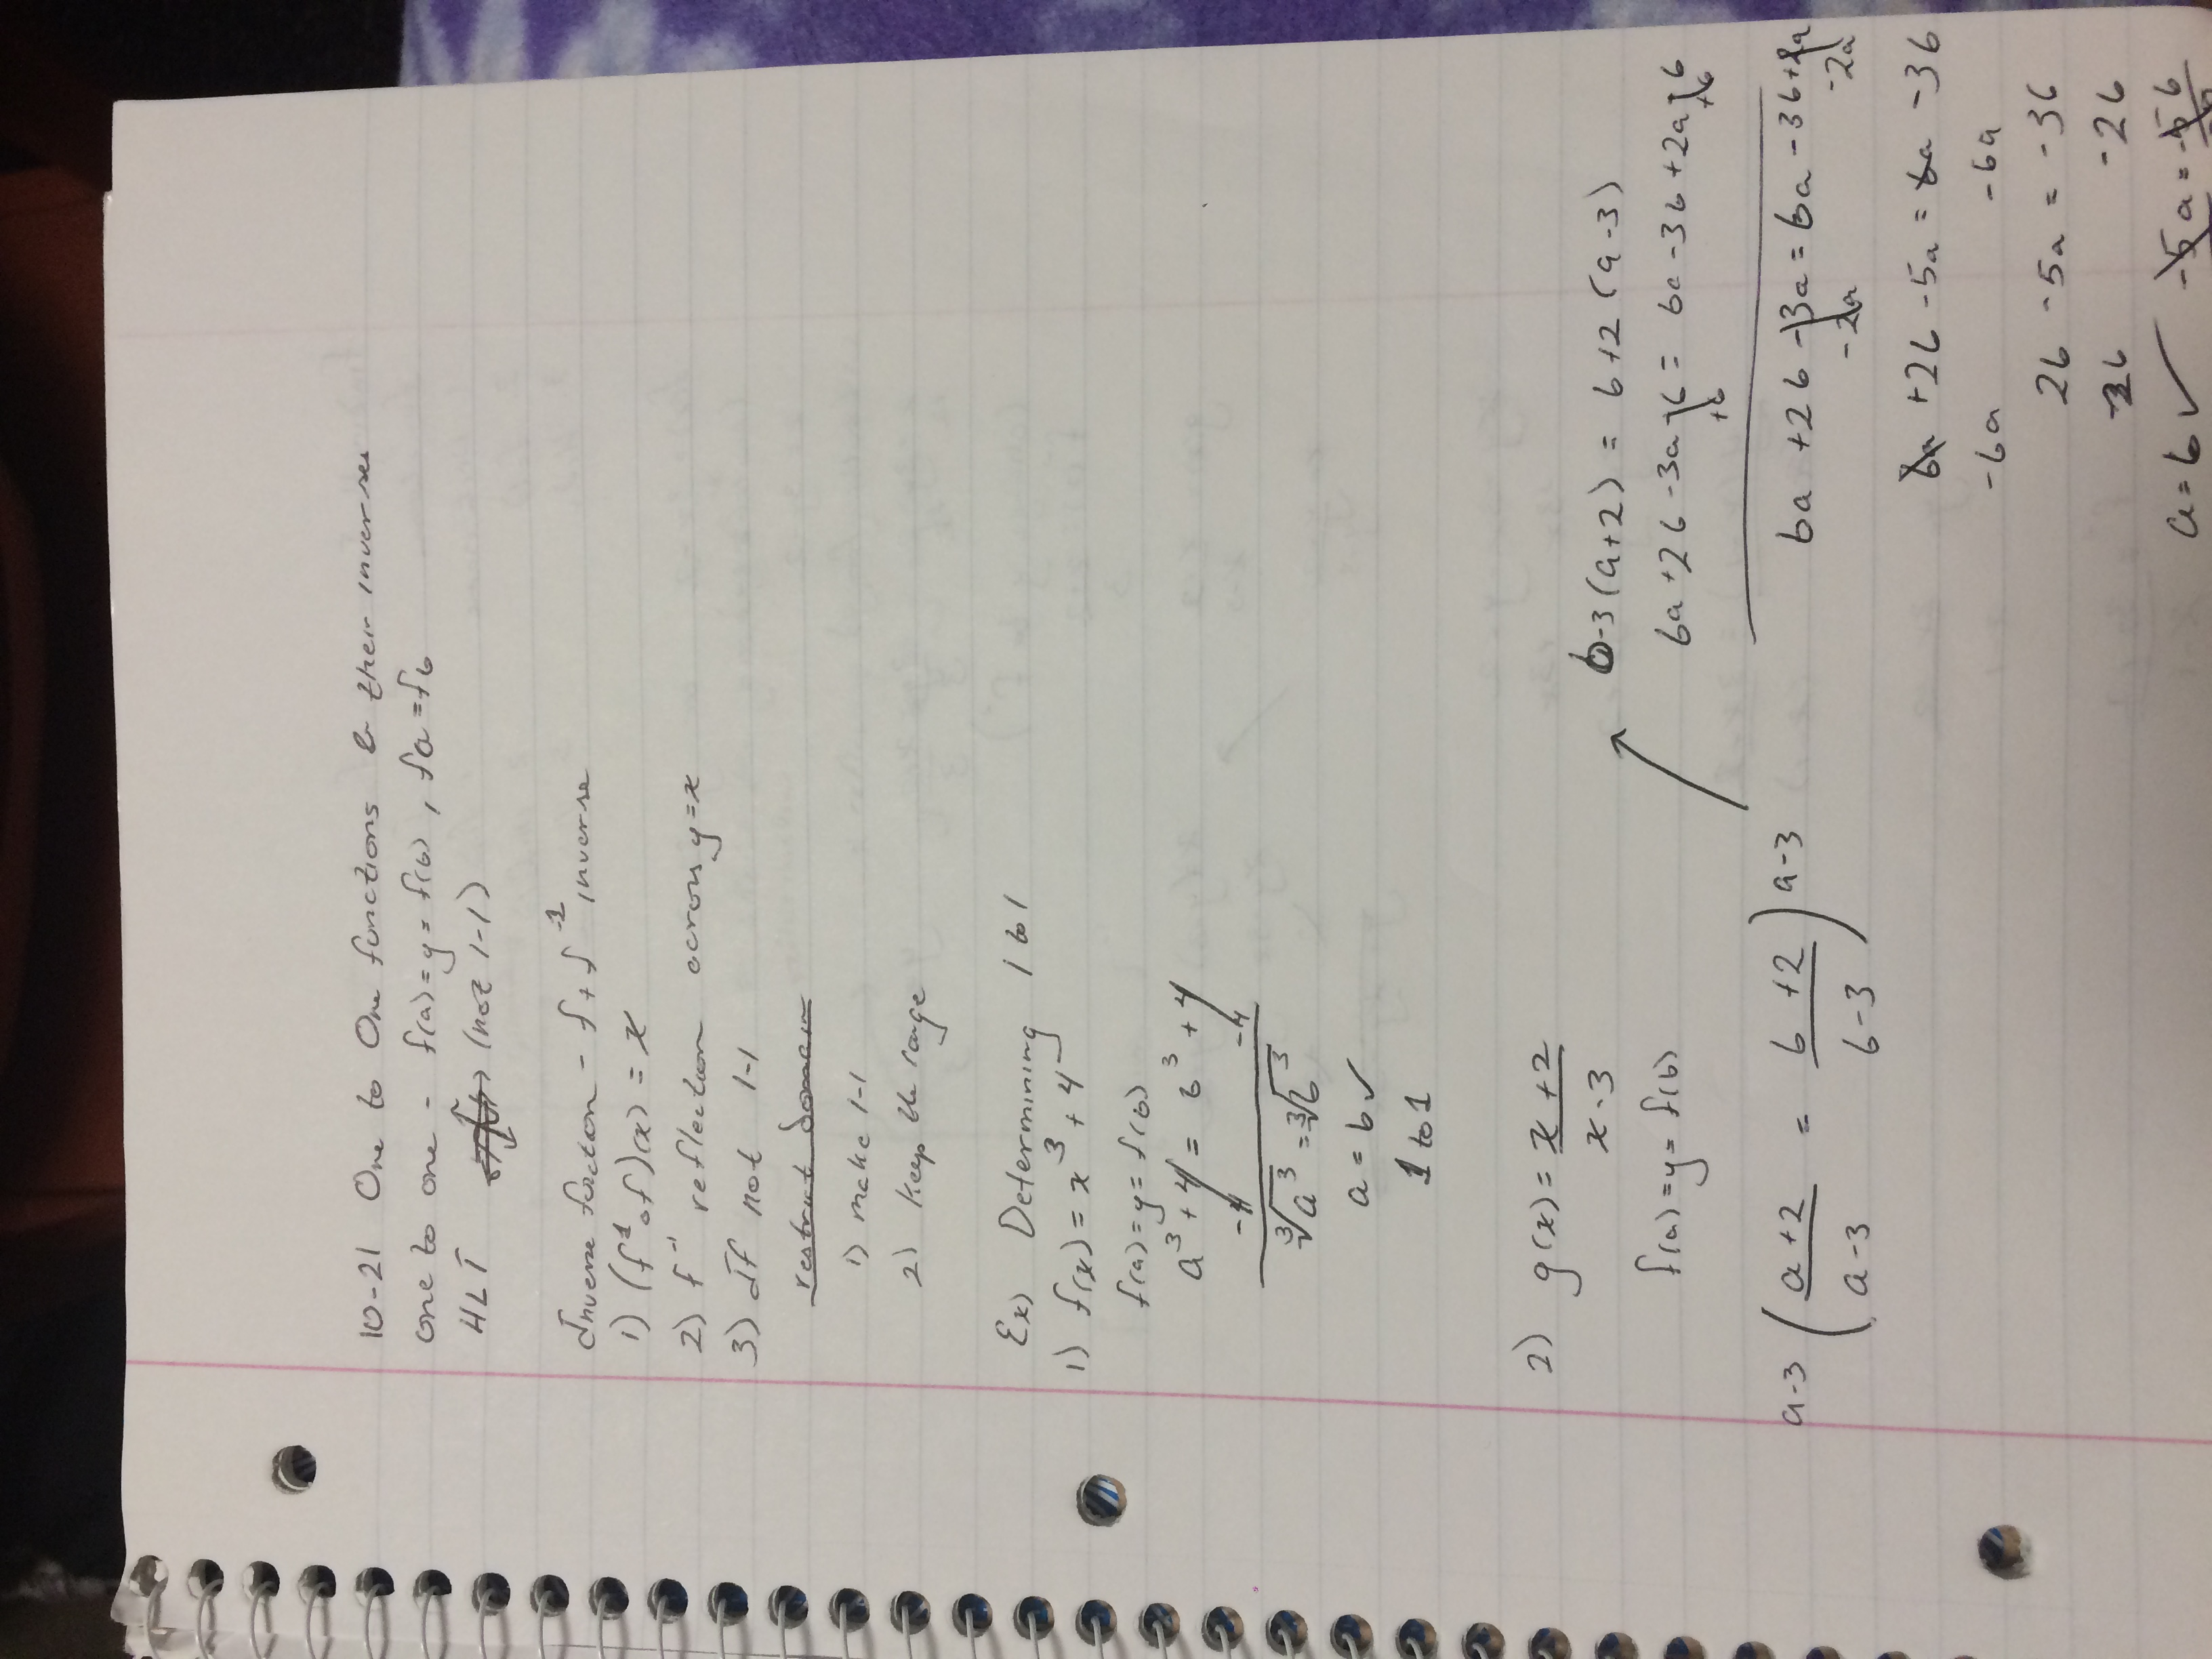 10-21 One to One functions & their inverses
one to one - f(a)=y=f(b), fa=fb
HLT (not 1-1)
Inverse function - f + f^-1 inverse
1) (f^-1 of)(x) = x
2) f^-1 reflection across y=x
3) If not 1-1
restrict domain
1) make 1-1
2) keep the range
Ex) Determining 1 to 1
1) f(x) = x^3 + 4
f(a)=y=f(b)
a^3 + 4 = b^3 + 4
-4 -4
∛a^3 = ∛b^3
a = b ✓
1 to 1
2) g(x) = x+2 / x-3
f(a)=y=f(b)
a-3 ( a+2 / a-3 = b+2 / b-3 ) a-3
b-3(a+2) = b+2(a-3)
ba+2b-3a-6 = ba-3b+2a-6
+6 +6
ba+2b-3a = ba-3b+2a
-2a -2a
ba+2b-5a = ba-3b
-ba -ba
2b-5a = -3b
-2b -2b
a = b ✓ -5a = -5b